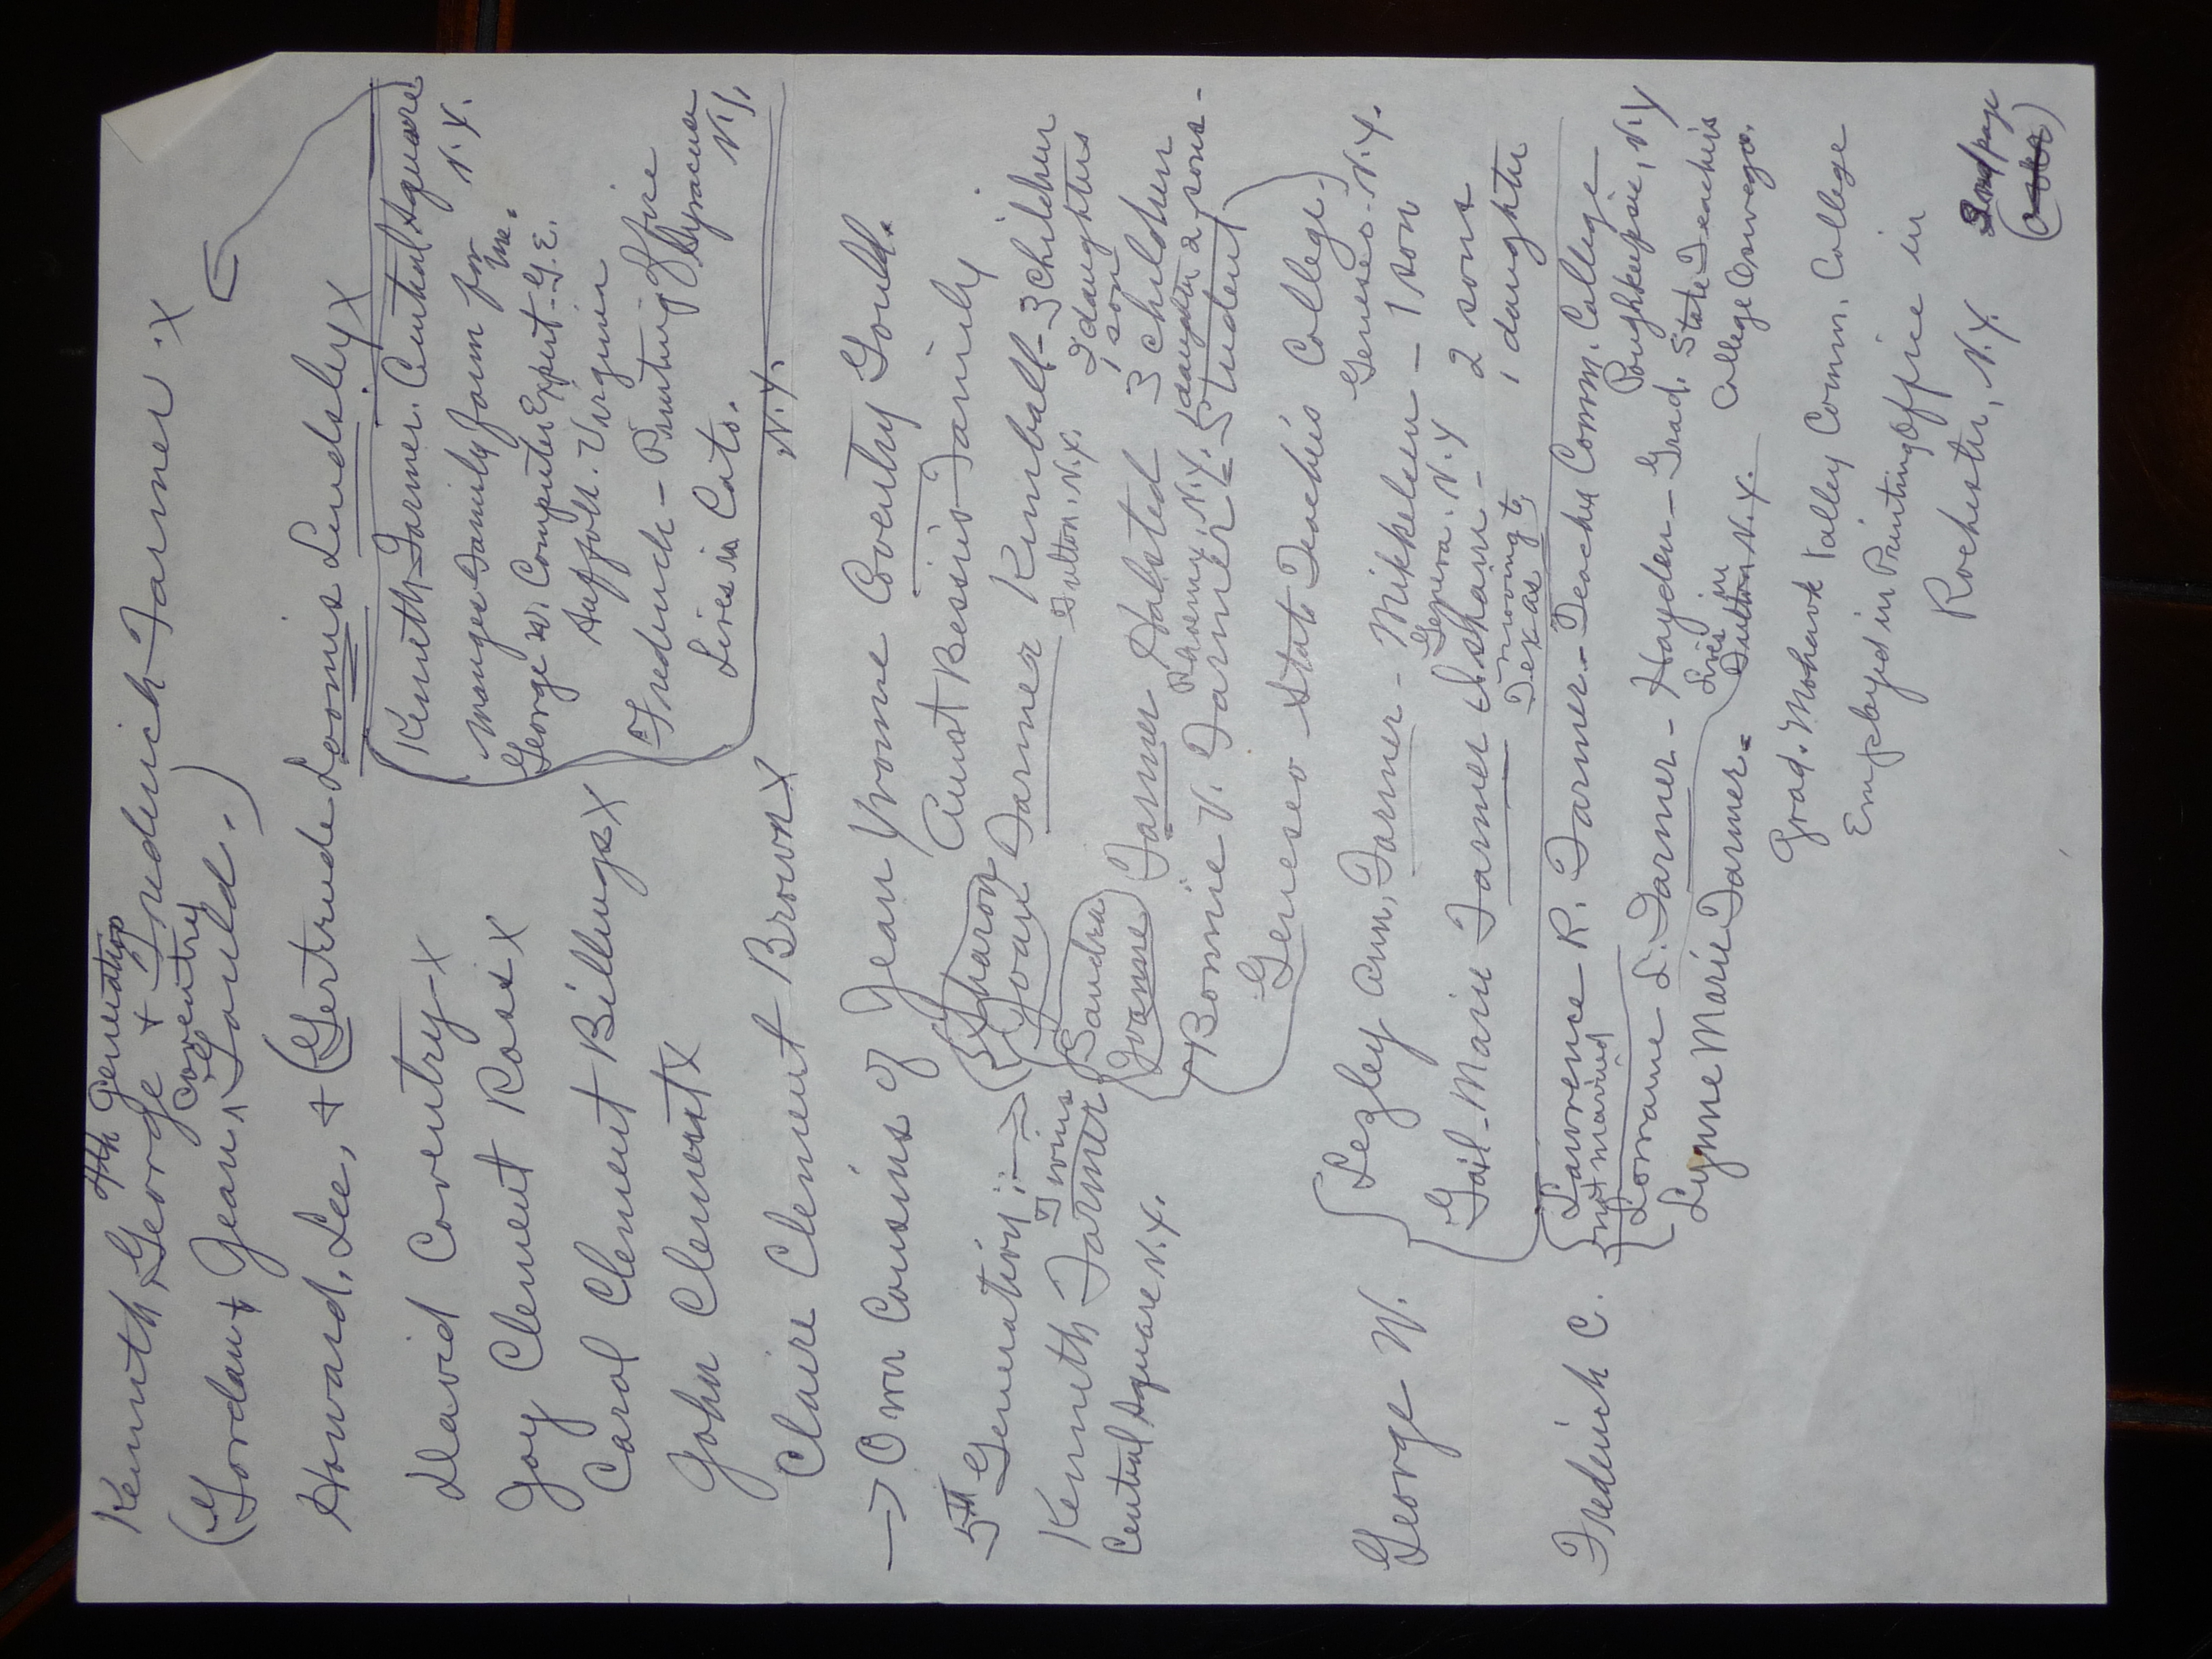 4th Generation
Kenneth, George + Frederick Farmer. X
Coventry
(Gordan + Jean, Gould.)
Howard, Lee, + (Gertrude Loomis Lindsley X
David Coventry - X
Joy Clement Ross X
Carol Clement Billings X
John Clement X
Claire Clement Brown X
Kenneth Farmer. Central Square
N.Y.
manages family farm for
me.
George W. Computer Expert - G.E.
Suffolk. Virginia
Frederick - Printing Office
Syracuse
Lives in Cato. N.Y.
N.Y.
→ Own Cousins of Jean Yvonne Coventry Gould.
Aunt Bessie Family
5TH Generation: →
Kenneth Farmer
Twins
Central Square N.Y.
Sharon
Joan Farmer Kimball - 3 Children
Fulton, N.Y. 2 daughters
1 son
Sandra
Joanne Farmer Halsted 3 children
N.Y. 1 daughter 2 sons -
Bonnie V. Farmer - Student
Geneseo State Teachers College.
Geneseo - N.Y.
George W.
Lezley Ann, Farmer - Mikkelsen - 1 son
Geneva. N.Y
Gail - Marie Farmer Isham - 2 sons
1 daughter
moving to
Texas
Frederick C.
Lawrence R. Farmer - Teacher Comm. College
not married
Poughkeepsie, N.Y
Lorraine L. Farmer - Hayden - Grad. State Teachers
College Oswego.
Lives in
Fulton N.Y.
Lynne Marie Farmer.
Grad. Mohawk Valley Comm. College
Employed in Printing Office in
Rochester, N.Y.
2nd page